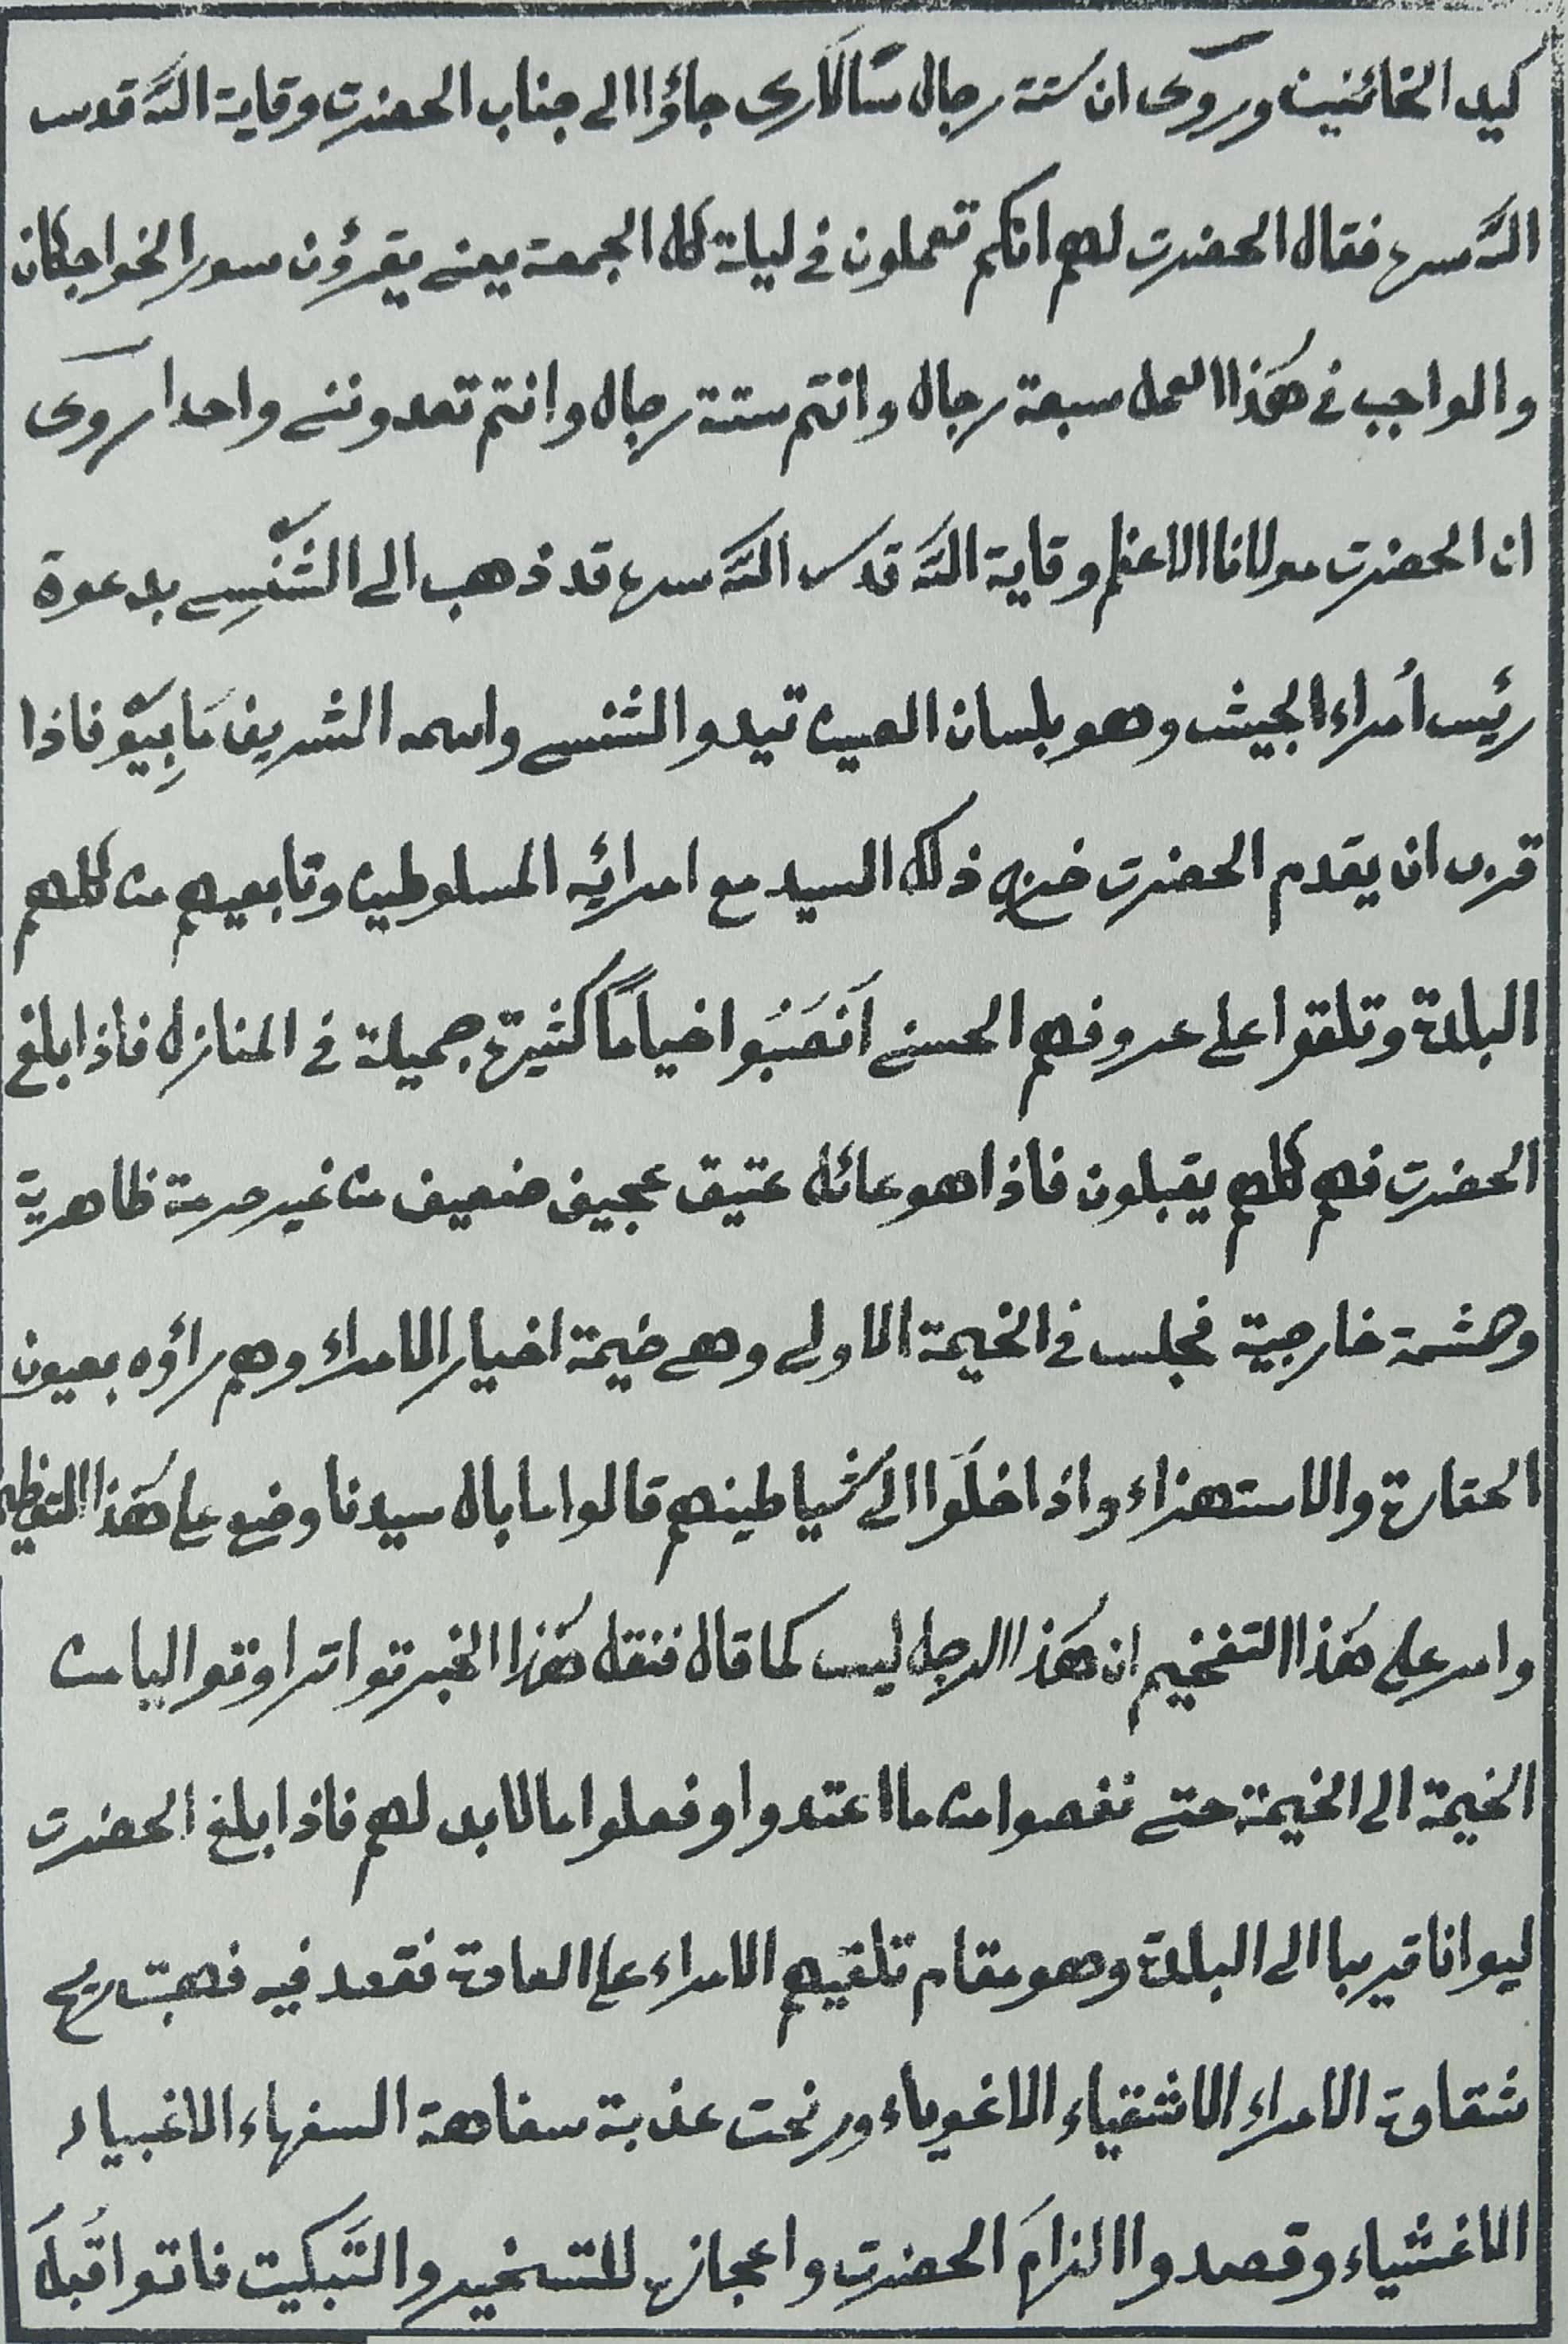 كيد الخائنين وروى ان ستة رجال سَالَارى جاؤا الى جناب الحضرت وقاية الله قدس
الله سره فقال الحضرت لهم انكم تعملون فى ليلة كل الجمعة يعنى يقرؤن سور الخواجكان
والواجب فى هٰذا العمل سبعة رجال وانتم ستة رجال وانتم تعدوننى واحدا روى
ان الحضرت مولانا الاعظم وقاية الله قدس الله سره قد ذهب الى الشَّنْسِى بدعوة
رئيس أمراء الجيش وهو بلسان الصين تيدو الشنسى واسمه الشريف مَابِيَوْ فاذا
قرب ان يقدم الحضرت خرج ذلك السيد مع امرائه المسلوطين وتابعيهم من كلهم
البلدة وتلقوا على عروفهم الحسنى اَنصَبُوا خياماً كثيرة جميلة فى المنازل فاذا بلغ
الحضرت فهم كلهم يقبلون فاذا هو عائل عتيق عجيف ضعيف من غير حرمة ظاهرية
وحشمة خارجية فجلس فى الخيمة الاولى وهى خيمة اخيار الامراء وهم راؤه بعيون
الحقارة والاستهزاء واذا خلَوا الى شياطينهم قالوا ما بال سيدنا وضع على هٰذا التعظيم
وامر على هٰذا التفخيم ان هٰذا الرجل ليس كما قال فنقل هٰذا الخبر تواترا وتواليا من
الخيمة الى الخيمة حتى نغصوا من ما اعتدوا وفعلوا ما لا بد لهم فاذا بلغ الحضرت
ليوانا قريبا الى البلدة وهو مقام تلقيهم الامراء على العادة فقعد فيه فهبت ريح
شقاوة الامراء الاشقياء الاغوياء ورنحت عذبة سفاهة السفهاء الاغبياء
الاغشياء وقصدوا الزامَ الحضرت واعجازه للتسخير والتَّبكيت فاتوا قُبلَ